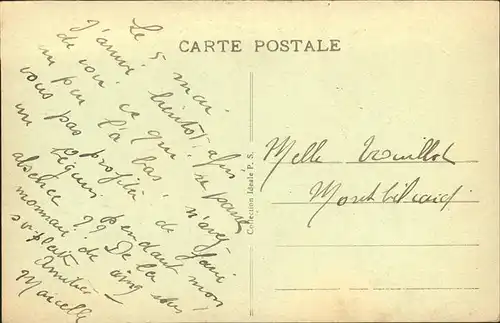 CARTE POSTALE
Le 5 mai
J'arrive bientôt, afin
de voir ce qui se passe
un peu là bas. N'avez
vous pas profité de faire
un béguin pendant mon
absence ?? De la
monnaie de cinq sous
s.v.plait
Amitiés
Marcelle
Collection Idéale P. S.
Melle Vouillot
Montbéliard